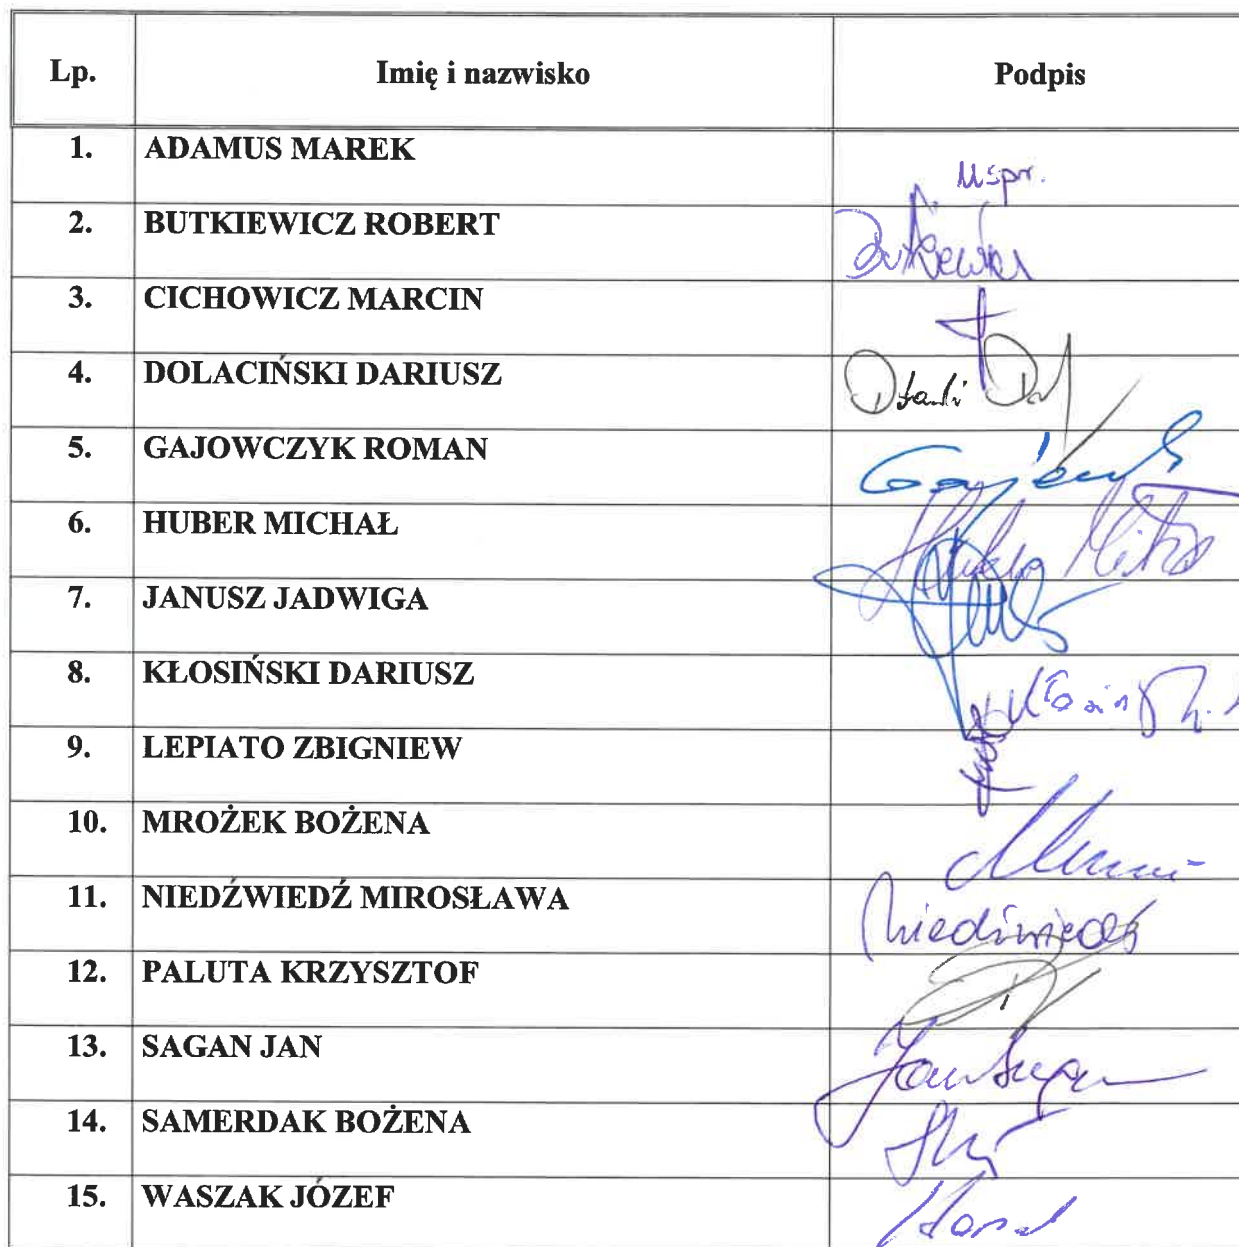 Lp. Imię i nazwisko Podpis
1. ADAMUS MAREK uspr.
2. BUTKIEWICZ ROBERT
3. CICHOWICZ MARCIN
4. DOLACIŃSKI DARIUSZ
5. GAJOWCZYK ROMAN
6. HUBER MICHAŁ
7. JANUSZ JADWIGA
8. KŁOSIŃSKI DARIUSZ
9. LEPIATO ZBIGNIEW
10. MROŻEK BOŻENA
11. NIEDŹWIEDŹ MIROSŁAWA Niedźwiedź
12. PALUTA KRZYSZTOF
13. SAGAN JAN Jan Sagan
14. SAMERDAK BOŻENA
15. WASZAK JÓZEF